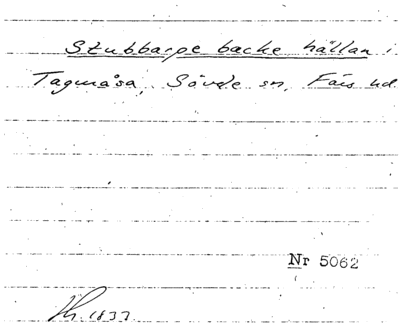 Stubbarpe backe hällan i
Tagmåsa, Sövde sn, Färs hd
Nr 5062
Th. 1837.